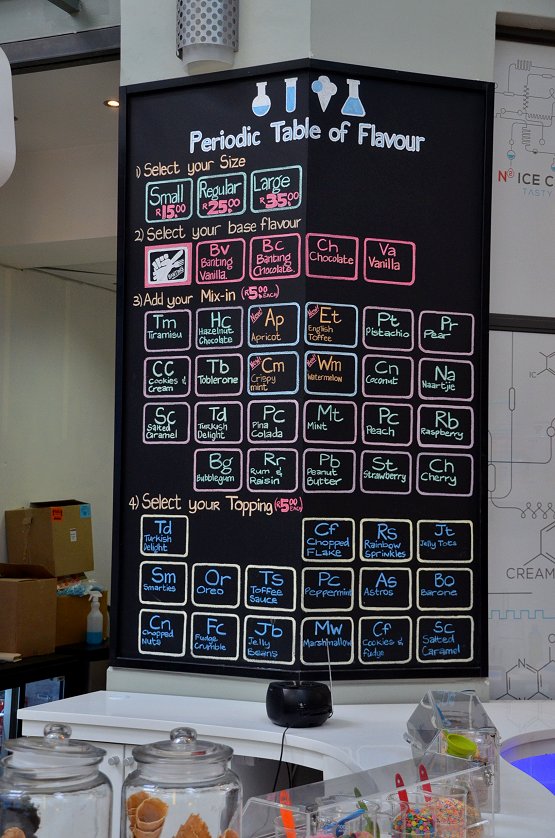 Periodic Table of Flavour
1) Select your Size
Small R15.00
Regular R25.00
Large R35.00
2) Select your base flavour
BANTING
Bv Banting Vanilla
Bc Banting Chocolate
Ch Chocolate
Va Vanilla
3) Add your Mix-in (R5.00 Each)
Tm Tiramisu
Hc Hazelnut Chocolate
New! Ap Apricot
New! Et English Toffee
Pt Pistachio
Pr Pear
CC Cookies & Cream
Tb Toblerone
New! Cm Crispy mint
New! Wm Watermelow
Cn Coconut
Na Naartjie
Sc Salted Caramel
Td Turkish Delight
Pc Pina Colada
Mt Mint
Pc Peach
Rb Raspberry
Bg Bubblegum
Rr Rum & Raisin
Pb Peanut Butter
St Strawberry
Ch Cherry
4) Select your Topping (R5.00 Each)
Td Turkish Delight
Cf Chopped Flake
Rs Rainbow Sprinkles
Jt Jelly Tots
Sm Smarties
Or Oreo
Ts Toffee Sauce
Pc Peppermint
As Astros
Bo Barone
Cn Chopped Nuts
Fc Fudge Crumble
Jb Jelly Beans
Mw Marshmallow
Cf Cookies & fudge
Sc Salted Caramel
N2 ICE C
TASTY
CREAM